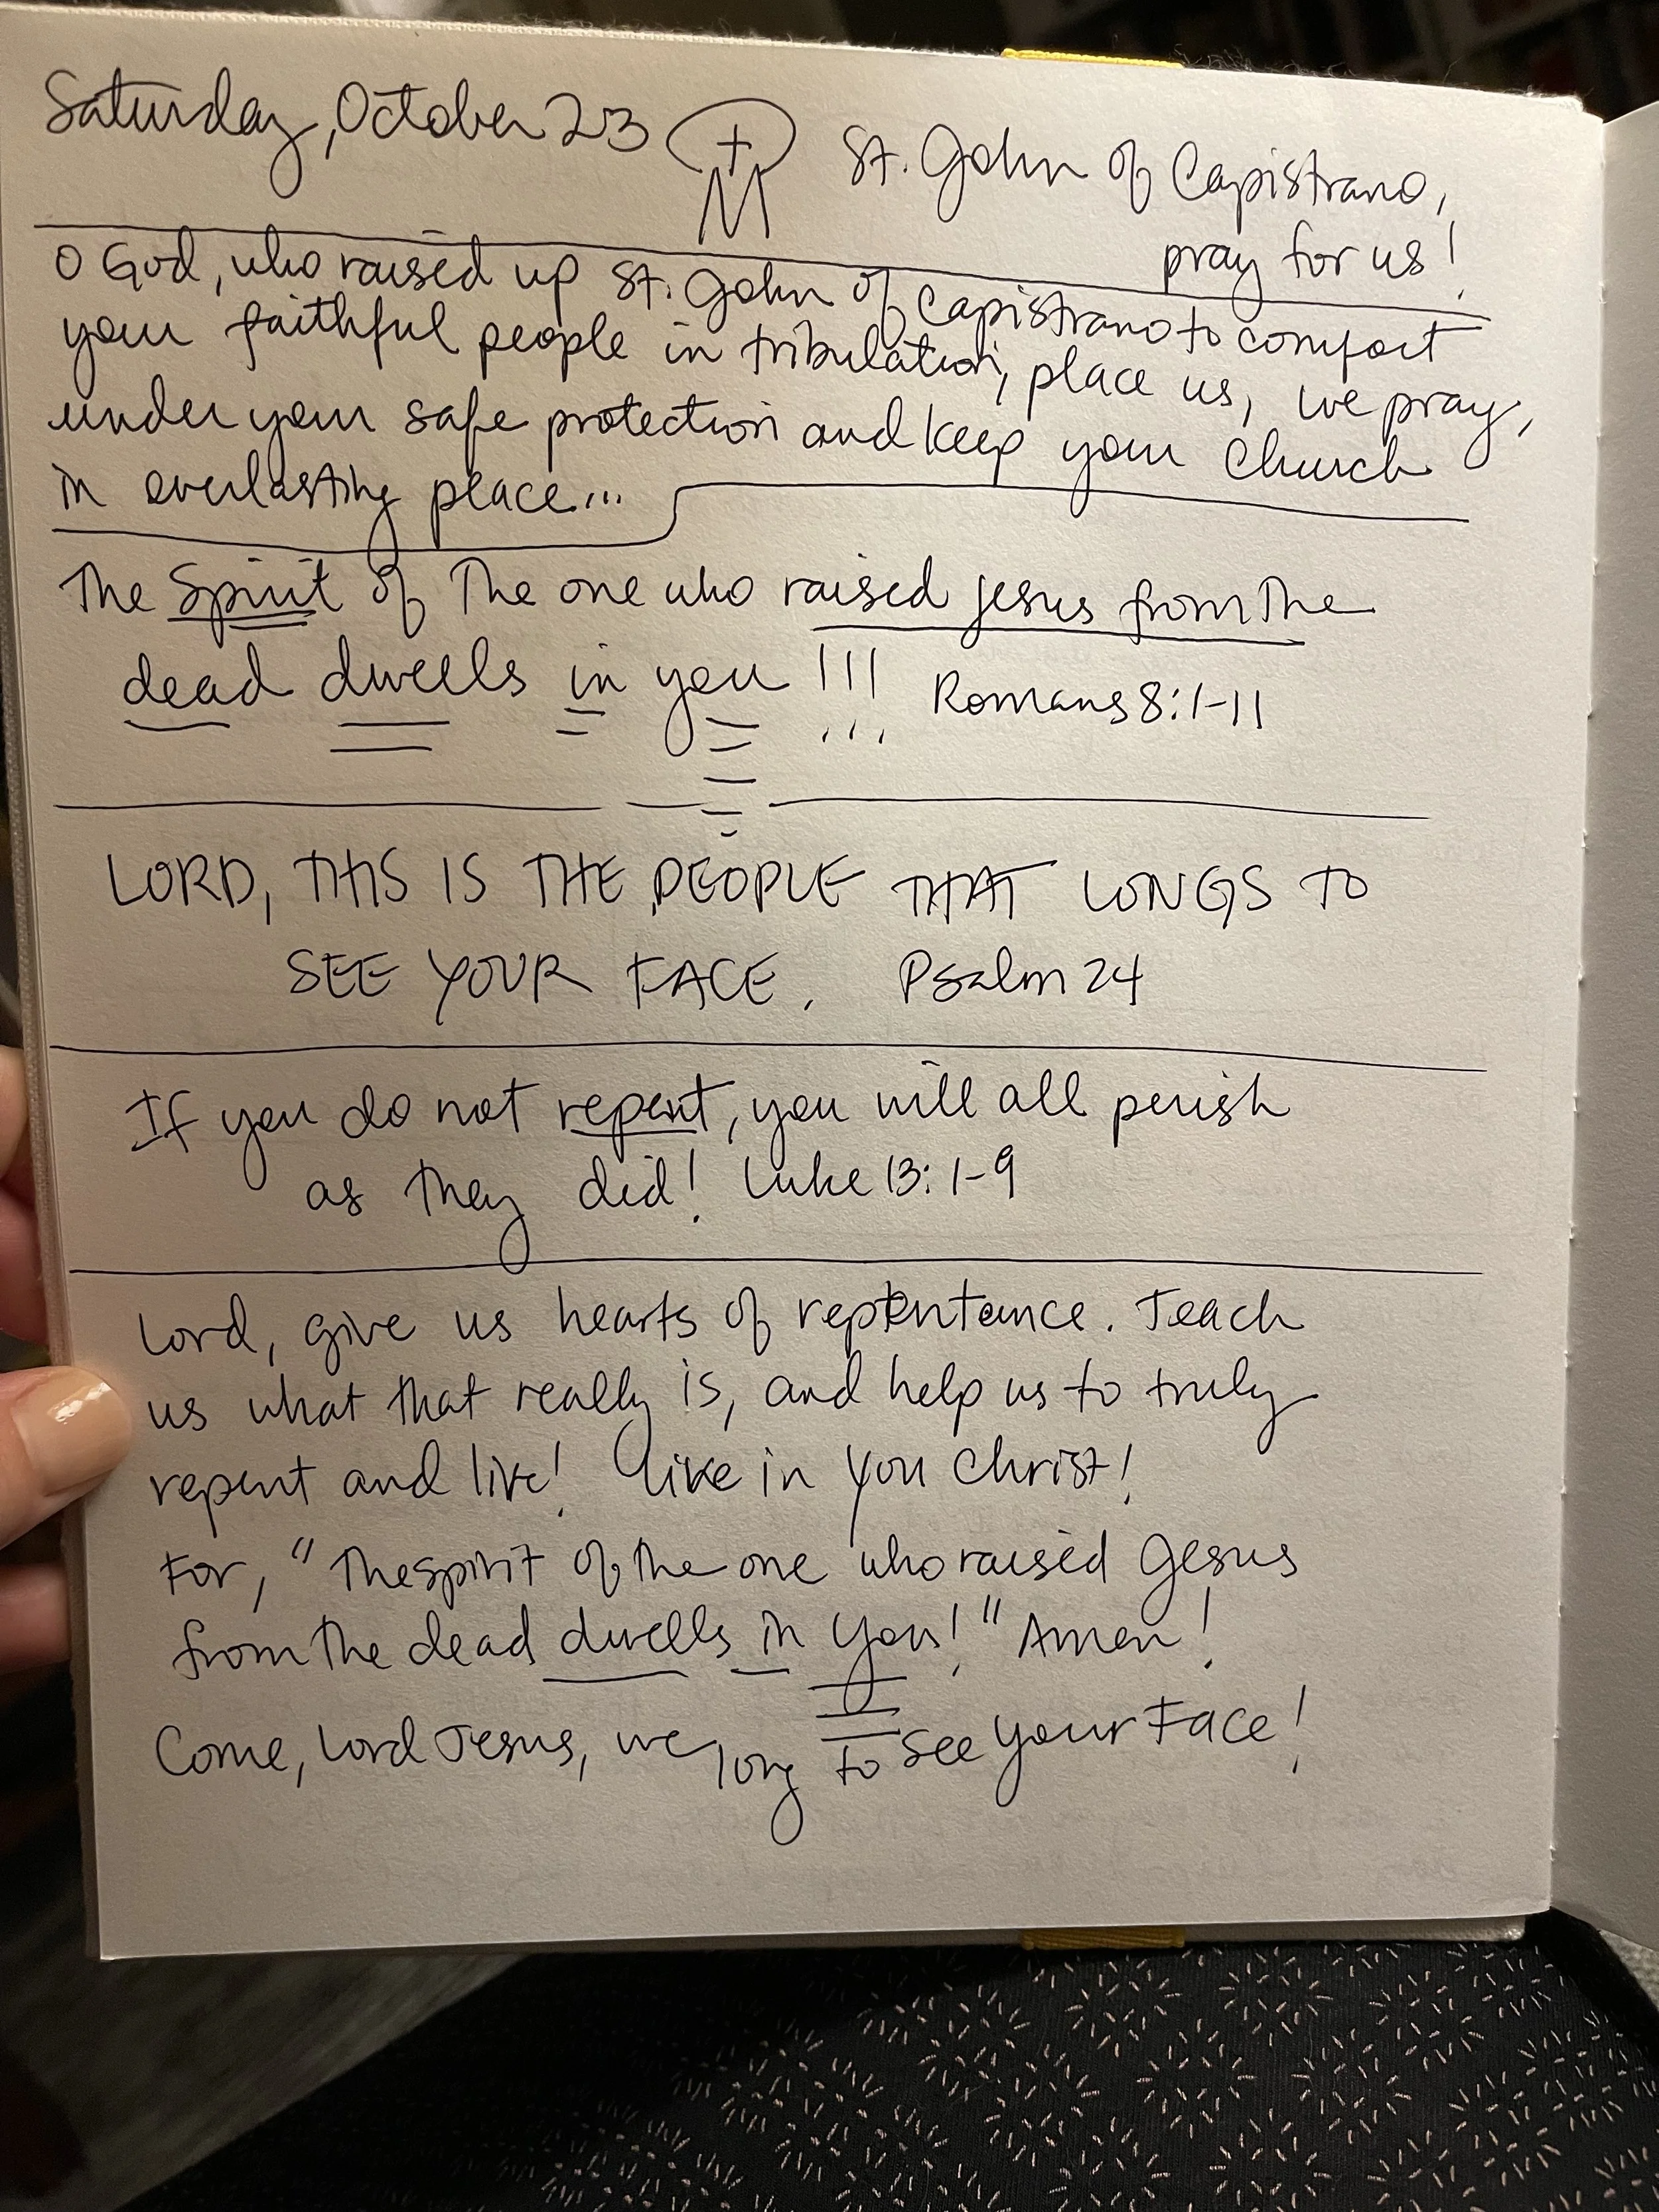 Saturday, October 23
St. John of Capistrano,
pray for us!
O God, who raised up St. John of Capistrano to comfort
your faithful people in tribulation, place us, we pray,
under your safe protection and keep your Church
in everlasting place...
The Spirit of the one who raised Jesus from the
dead dwells in you !!! Romans 8:1-11
LORD, THIS IS THE PEOPLE THAT LONGS TO
SEE YOUR FACE. Psalm 24
If you do not repent, you will all perish
as they did! Luke 13:1-9
Lord, give us hearts of repentance. Teach
us what that really is, and help us to truly
repent and live! Live in You Christ!
For, "The spirit of the one who raised Jesus
from the dead dwells in you!" Amen!
Come, Lord Jesus, we long to see your Face!